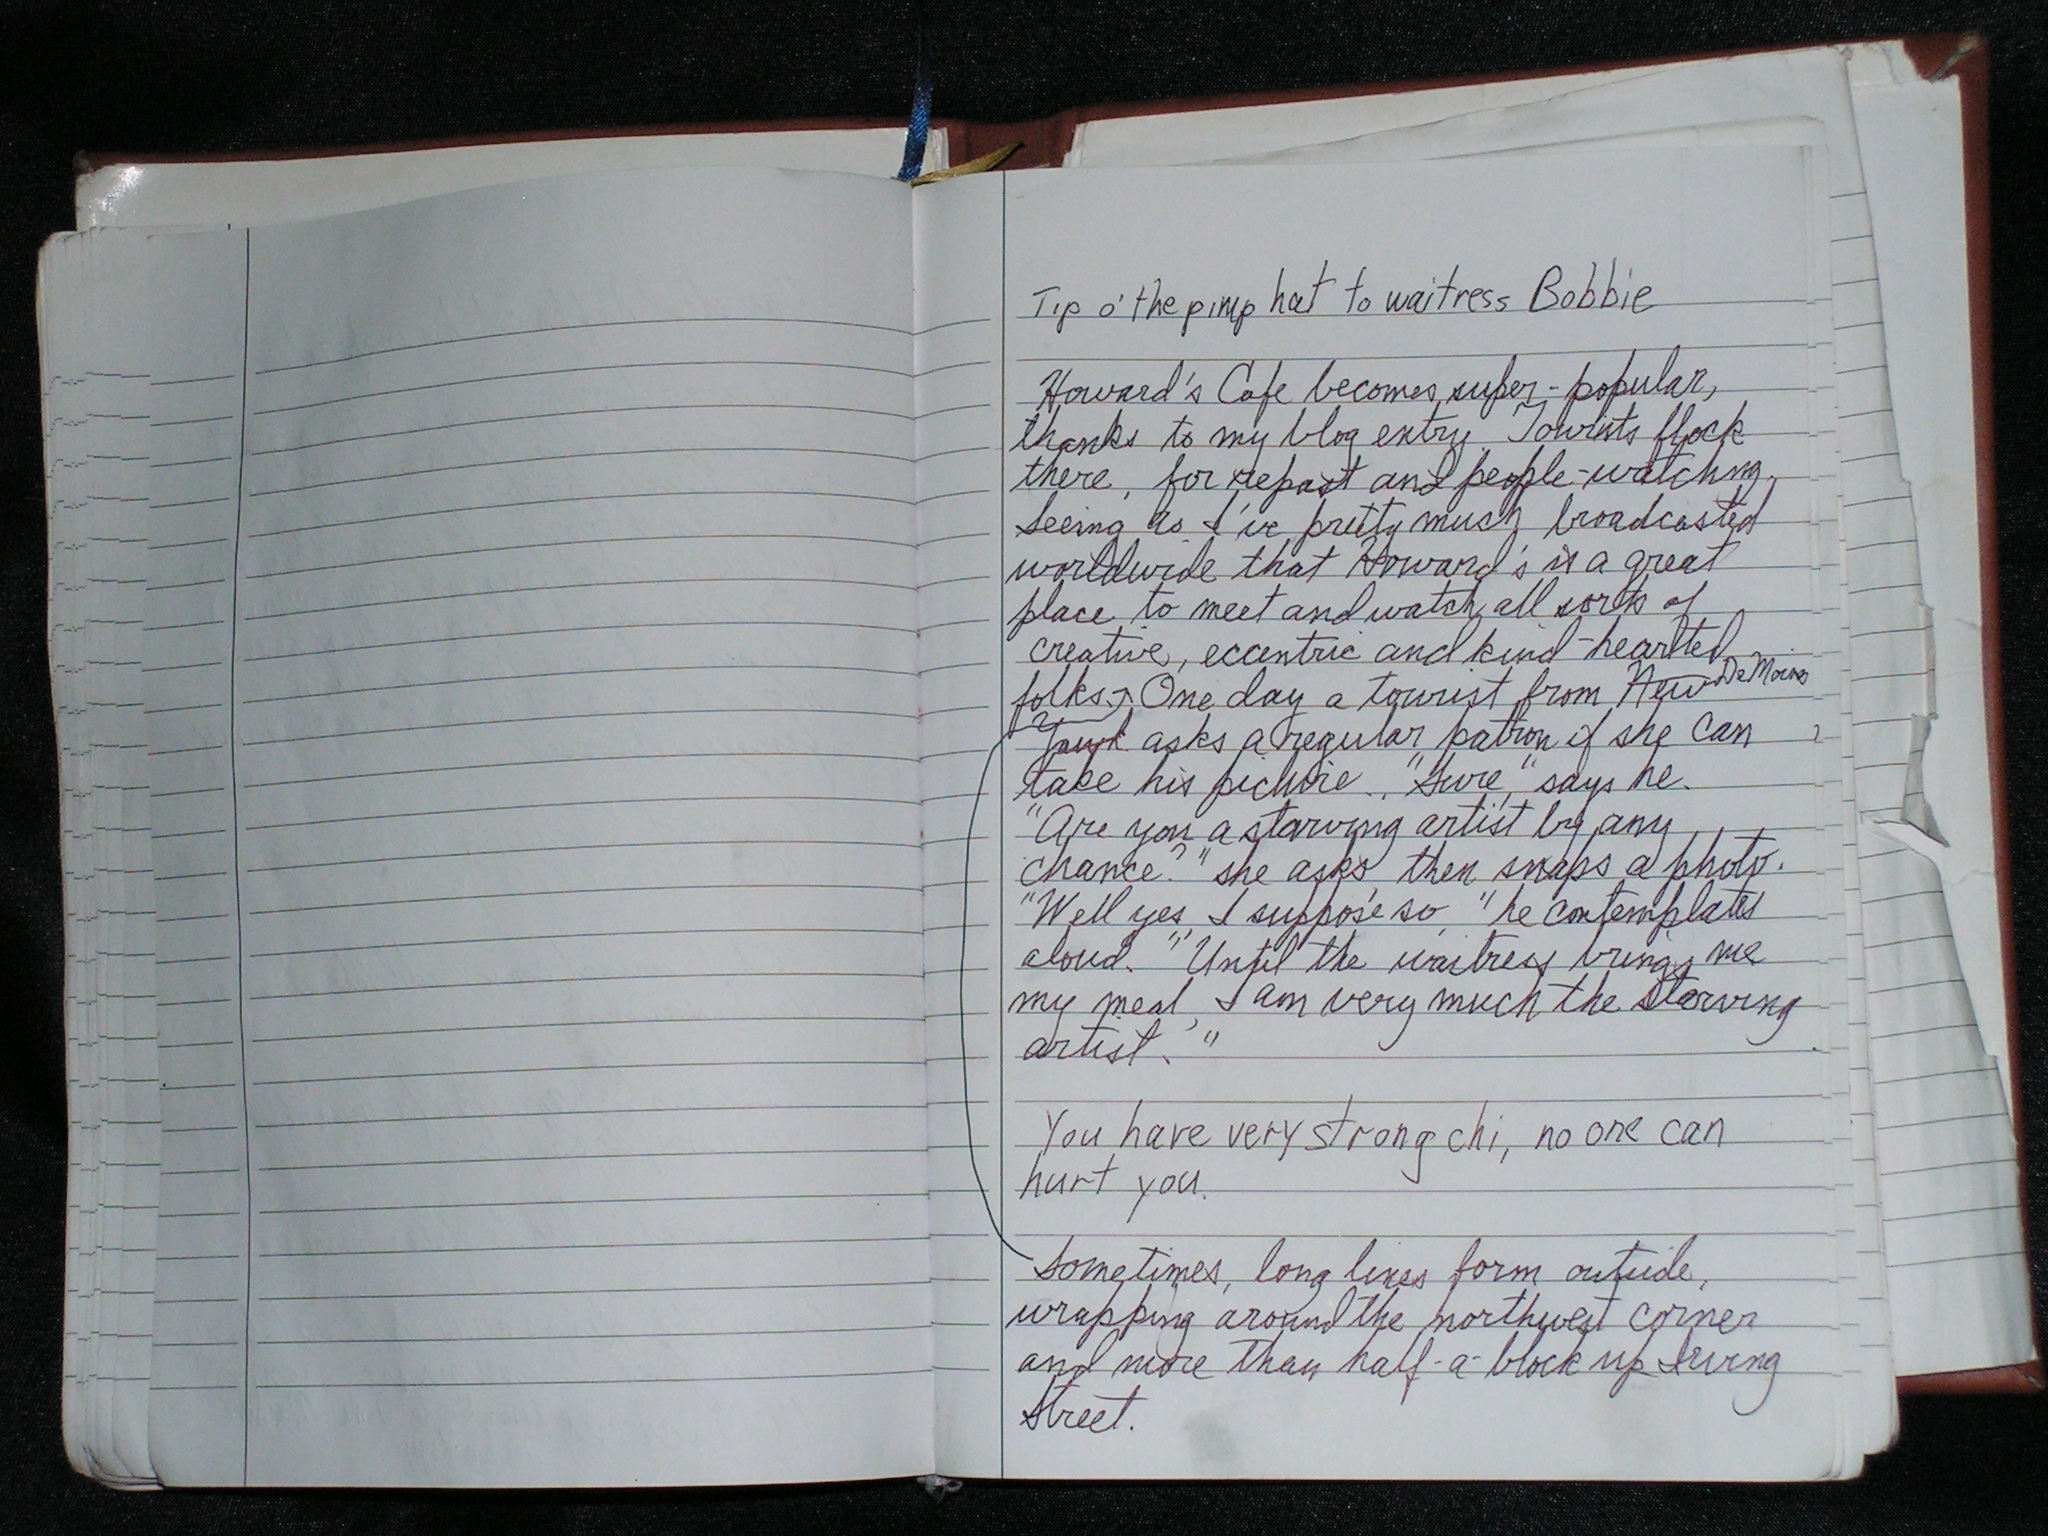 Tip o' the pimp hat to waitress Bobbie
Howard's Cafe becomes super-popular,
thanks to my blog entry. Tourists flock
there, for repast and people-watching,
seeing as I've pretty much broadcasted
worldwide that Howard's is a great
place to meet and watch all sorts of
creative, eccentric and kind-hearted
folks. One day a tourist from New De Moines
York asks a regular patron if she can
take his picture. "Sure," says he.
"Are you a starving artist by any
chance?" she asks, then snaps a photo.
"Well yes, I suppose so," he contemplates
aloud. "Until the waitress brings me
my meal, I am very much the starving
artist."
You have very strong chi, no one can
hurt you.
Sometimes, long lines form outside,
wrapping around the northwest corner
and more than half-a-block up Irving
Street.